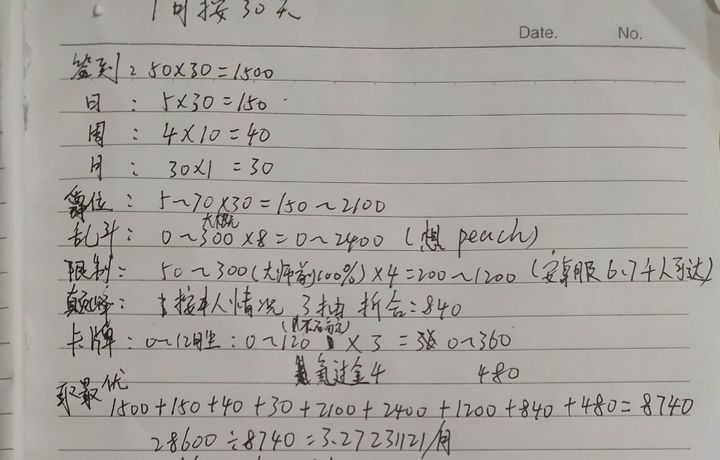 1月按30天
Date. No.
签到：50×30=1500
日：5×30=150
周：4×10=40
月：30×1=30
段位：5~70×30=150~2100
大概
乱斗：0~300×8=0~2400（想peach）
限制：50~300(大师前100%)×4=200~1200（安卓服6.7千人到达）
巅峰：按本人情况 3抽 折合：840
卡牌：0~12胜：0~120×3=0~360
氪过金4 480
取最优
1500+150+40+30+2100+2400+1200+840+480=8740
28600÷8740=3.27231121/月